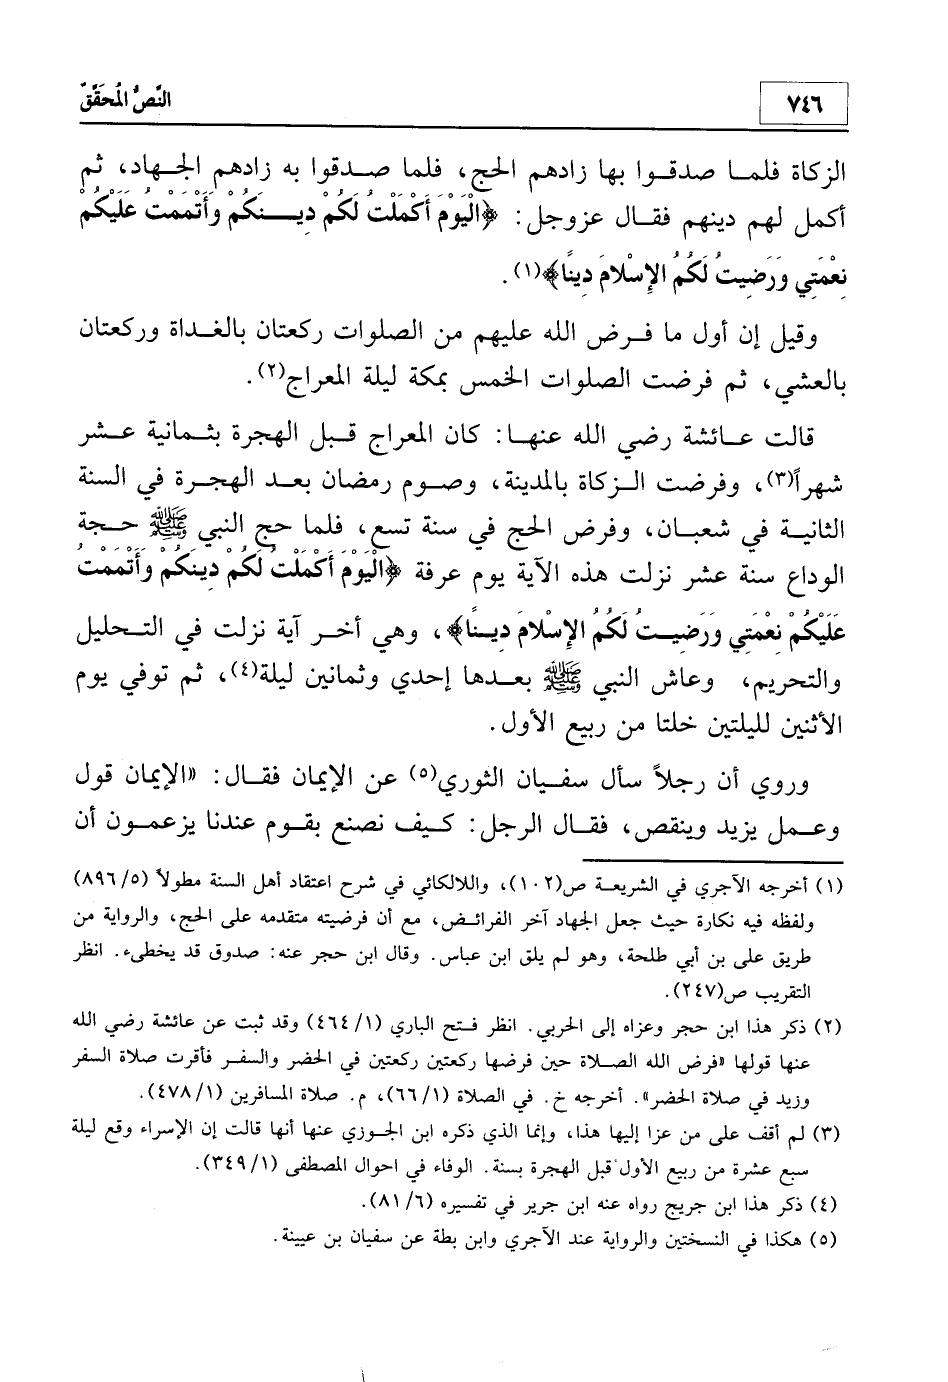 ٧٤٦
النَّصُّ المُحَقَّقّ
الزكاة فلمـا صدقـوا بها زادهم الحج، فلما صـدقوا به زادهم الجـهاد، ثم
أكمل لهم دينهم فقـال عزوجل: ﴿الْيَوْمَ أَكْمَلْتُ لَكُمْ ديـنَكُمْ وأَتْمَمتُ عَلَيْكُمْ
نِعْمَتِي وَرَضِيتُ لَكُمُ الإِسْلامَ دِينًا﴾(١).
وقيل إن أول ما فـرض الله عليهم من الصلوات ركعتان بالغـداة وركعتان
بالعشي، ثم فرضت الصلوات الخمس بمكة ليلة المعراج(٢).
قالت عـائشة رضي الله عنهـا: كان المعراج قبـل الهجرة بثـمانية عـشر
شهراً(٣)، وفرضت الـزكاة بالمدينة، وصـوم رمضان بعـد الهـجرة في السنة
الثانيـة في شعبـان، وفرض الحج في سنة تسع، فلما حج النبي ﷺ حـجة
الوداع سنة عشر نزلت هذه الآية يوم عرفة ﴿الْيَوْمَ أَكْمَلْتُ لَكُمْ دِينَكُمْ وأَتْمَمْتُ
عَلَيْكُمْ نِعْمَتِي وَرَضِيـتُ لَكُمُ الإِسْلامَ دِيـنًا﴾، وهي أخـر آية نزلت في التـحليل
والتحريم، وعاش النبي ﷺ بعـدها إحدي وثمانين ليلة(٤)، ثم توفي يوم
الأثنين لليلتين خلتا من ربيع الأول.
وروي أن رجلاً سأل سفـيان الثوري(٥) عن الإيمان فقـال: «الإيمان قول
وعـمل يزيد وينقص، فقـال الرجل: كـيف نصنع بقـوم عندنا يزعمـون أن
(١) أخرجه الآجري في الشريعـة ص(١٠٢)، واللالكائي في شرح اعتقاد أهل السنة مطولاً (٨٩٦/٥)
ولفظه فيه نكارة حيث جعل الجهاد آخر الفرائـض، مع أن فرضيته متقدمه على الحج، والرواية من
طريق على بن أبي طلحة، وهو لم يلق ابن عباس. وقال ابن حجر عنه: صدوق قد يخطىء. انظر
التقريب ص(٢٤٧).
(٢) ذكر هذا ابن حجر وعزاه إلى الحربي. انظر فـتح الباري (٤٦٤/١) وقد ثبت عن عائشة رضي الله
عنها قولها «فرض الله الصـلاة حين فرضها ركعتين ركعتين في الحضر والسفـر فأقرت صلاة السفر
وزيد في صلاة الحضر». أخرجه خ. في الصلاة (٦٦/١)، م. صلاة المسافرين (٤٧٨/١).
(٣) لم أقف على من عزا إليها هذا، وإنما الذي ذكره ابن الجـوزي عنها أنها قالت إن الإسراء وقع ليلة
سبع عشرة من ربيع الأول قبل الهجرة بسنة. الوفاء في احوال المصطفى (٣٤٩/١).
(٤) ذكر هذا ابن جريج رواه عنه ابن جرير في تفسيره (٨١/٦).
(٥) هكذا في النسختين والرواية عند الآجري وابن بطة عن سفيان بن عيينة.